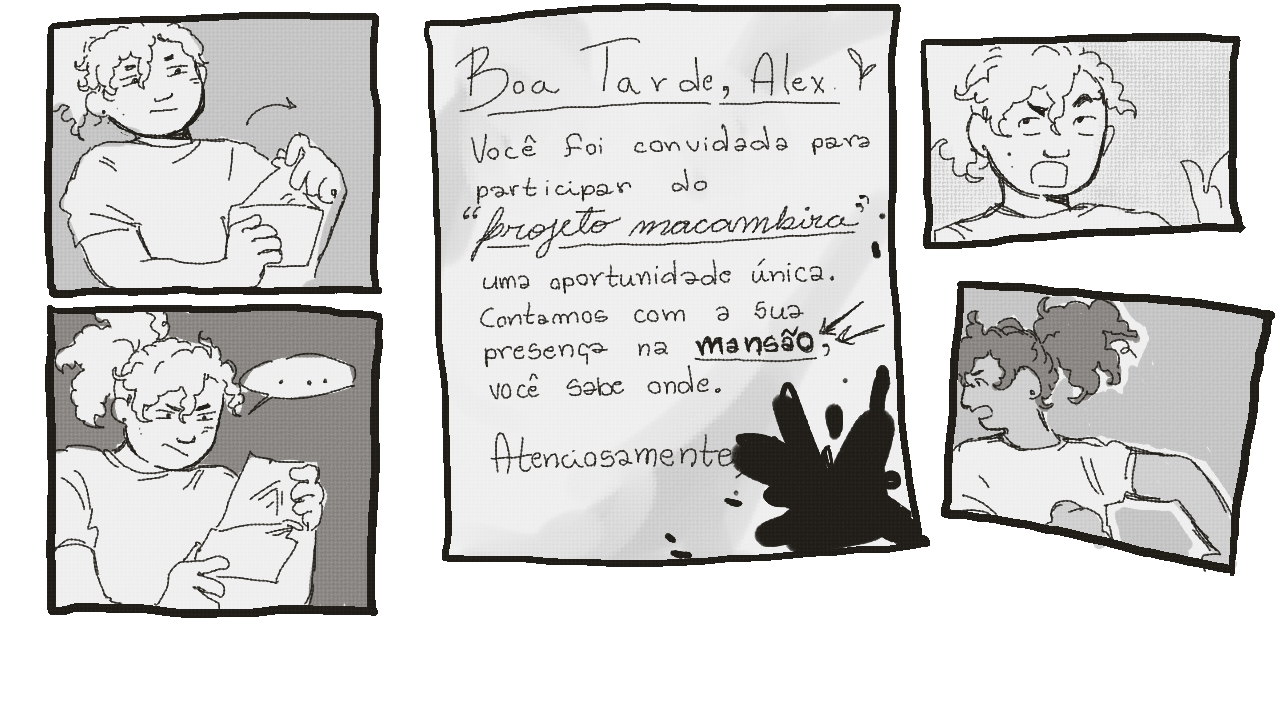 ...
Boa Tarde, Alex.
Você foi convidada para
participar do
"projeto macambira",
uma oportunidade única.
Contamos com a sua
presença na mansão,
você sabe onde.
Atenciosamente